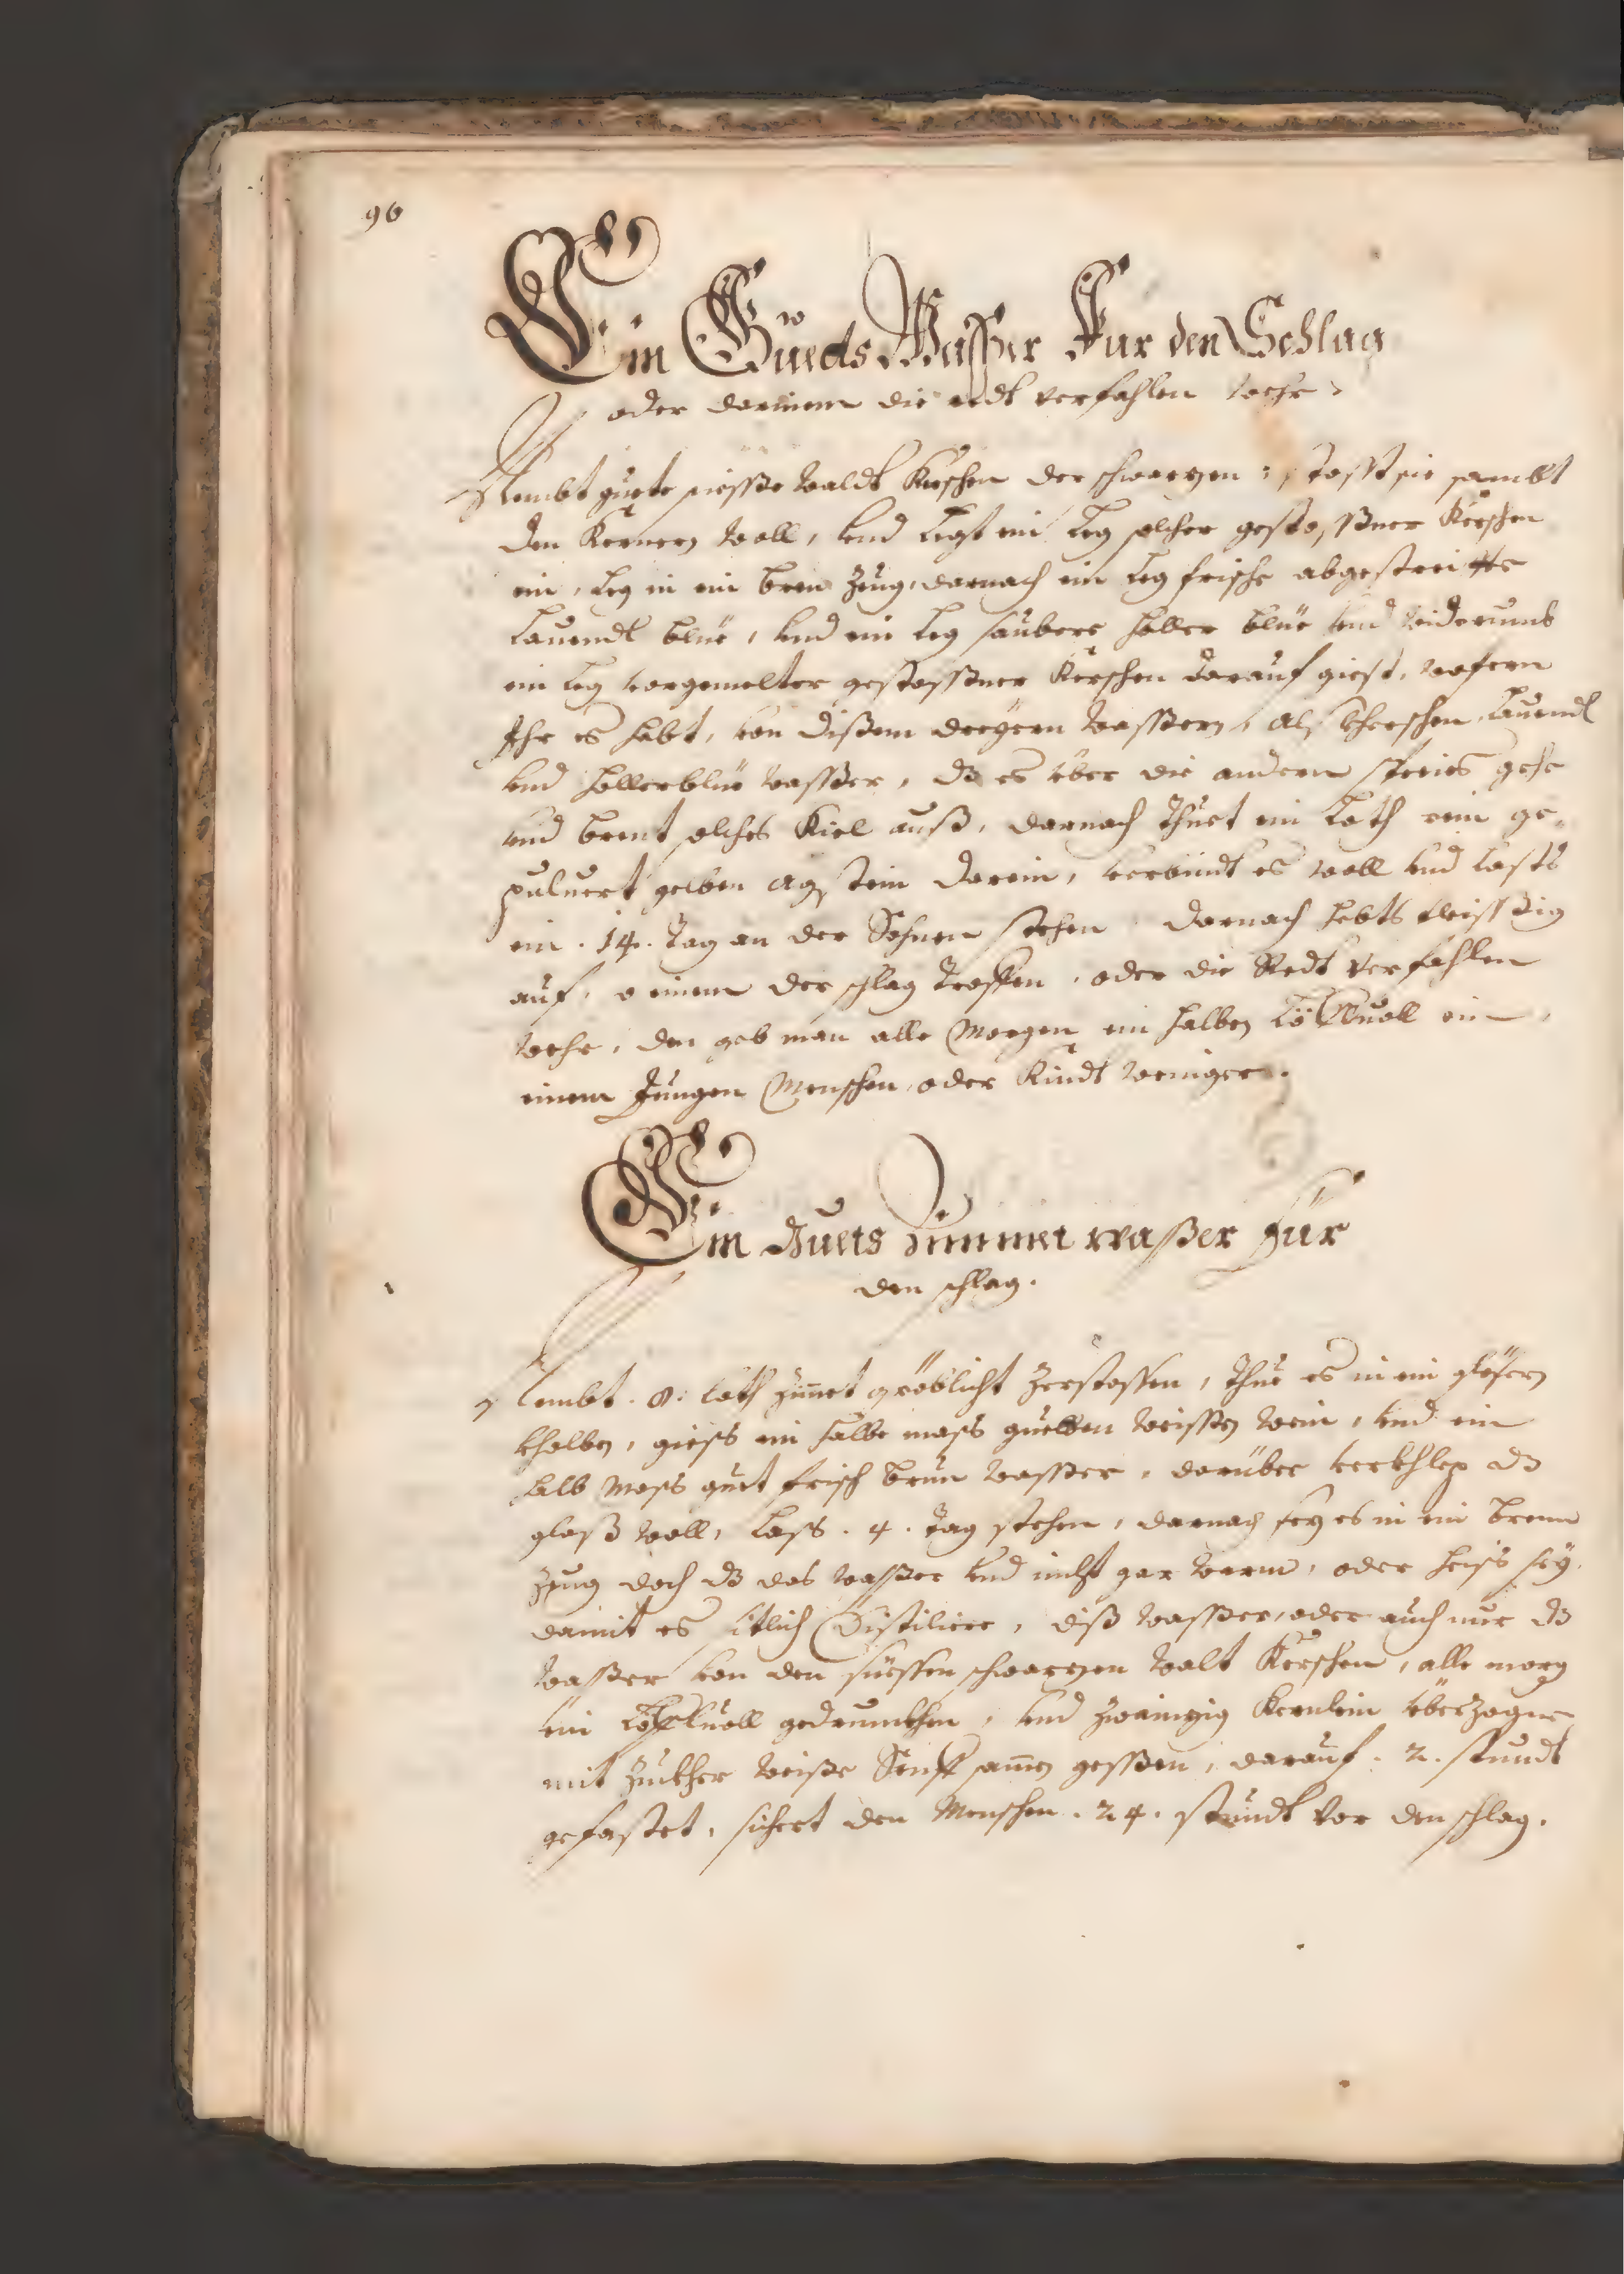 96
Ein Guets Wasser Fur den Schlag
oder dem einem die redt verfahlen wehr
Nembt guete siesse waldt Kerschen der schwarzen, stosst sie sambt
den Kernen woll, vnd Legt ein Leg solcher gestossner Kerschen
ein, Leg in ein bren Zeug, darnach ein Leg frische abgestreiffte
Lauendl blüe, vnd ein Leg saubere holler blüe vnd widerumb
ein Leg vorgemelter gestossner Kerschen darauf giest, wofern
Ihr es habt, von dißem dreyern wassern, alß kherschen, Lauendl
vnd hollerblüe wasser, dz es über die andern species gehe
vnd brent solches Kiel auß, darnach thuet ein Loth rein ge-
puluert gelben agstein darein, verbindt es woll vnd lasts
ein .14. tag an der Sohnen stehen darnach hebts fleissig
auf, einem der schlag troffen, oder die Redt verfahlen
wehr, den geb man alle Morgen ein halben Löffluoll ein,
einem Jungen Menschen, oder Kindt weniger.
Ein Guets Zimmet waßer für
den schlag.
Nembt .8. Loth Zimet gröblicht Zerstossen, thue es in ein gläsern
kholben, giess ein halbe mass guetten weissen wein, vnd ein
halb Mass guet frisch brun wasser, darüber verkhleb dz
glaß woll, Lass .4. tag stehen, darnach sez es in ein brenn
Zeug doch dz das wasser vnd nicht gar warm, oder heiss sey,
damit es sitlich Distiliere, diß wasser, oder auch nur dz
wasser von den süessen schwarzen walt Kerschen, alle morg
ein Löffluoll gedrunckhen, vnd zwainzig Kernlein überzogne
mit Zuckher weiße Senff samen gessen, darauf .2. stundt
gefastet, sichert den Menschen .24. stundt vor den schlag.